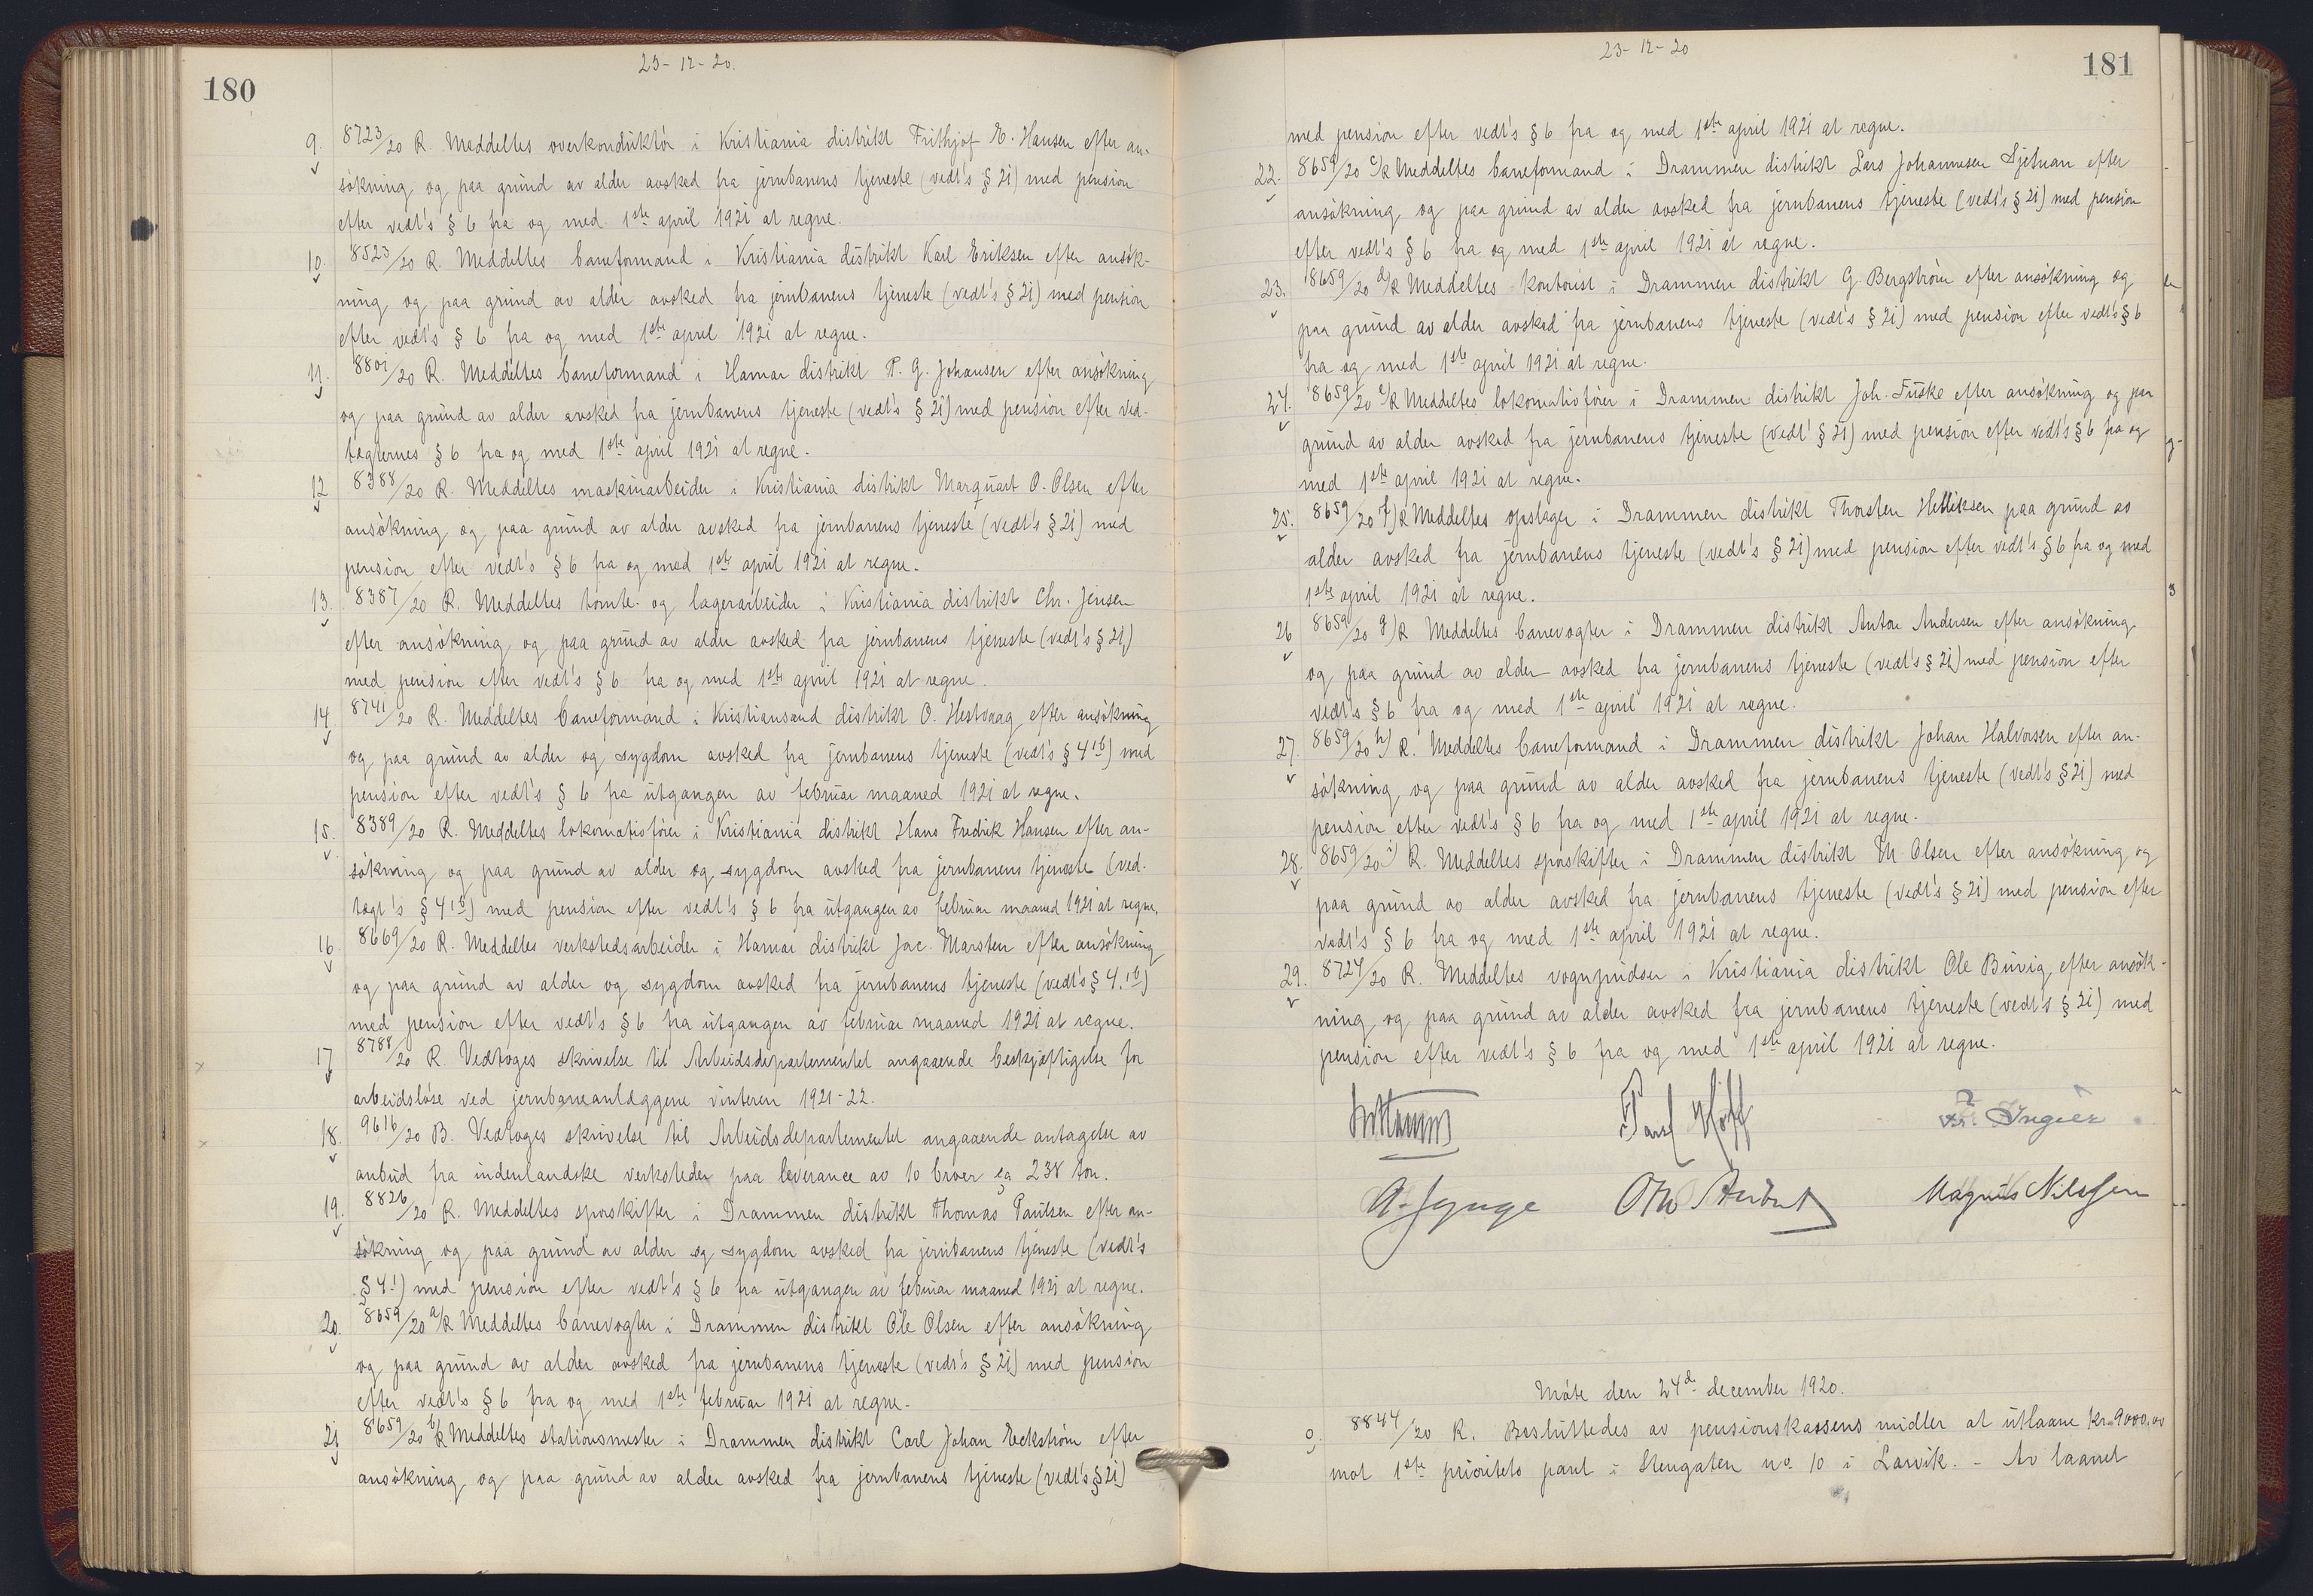 180
23-12-20.
9. 8723/20 R. Meddeltes overkonduktör i Kristiania distrikt Frithjof E. Hansen efter an-
sökning og paa grund av alder avsked fra jernbanens tjeneste (vedt's § 2i) med pension
efter vedt's § 6 fra og med 1ste april 1921 at regne.
10. 8523/20 R. Meddeltes baneformand i Kristiania distrikt Karl Eriksen efter ansök-
ning og paa grund av alder avsked fra jernbanens tjeneste (vedt's § 2i) med pension
efter vedt's § 6 fra og med 1ste april 1921 at regne.
11. 8801/20 R. Meddeltes baneformand i Hamar distrikt P. G. Johansen efter ansökning
og paa grund av alder avsked fra jernbanens tjeneste (vedt's § 2i) med pension efter ved-
tægternes § 6 fra og med 1ste april 1921 at regne.
12 8388/20 R. Meddeltes maskinarbeider i Kristiania distrikt Marquart O. Olsen efter
ansökning og paa grund av alder avsked fra jernbanens tjeneste (vedt's § 2i) med
pension efter vedt's § 6 fra og med 1ste april 1921 at regne.
13. 8387/20 R. Meddeltes tomte- og lagerarbeider i Kristiania distrikt Chr. Jensen
efter ansökning og paa grund av alder avsked fra jernbanens tjeneste (vedt's § 2i)
med pension efter vedt's § 6 fra og med 1ste april 1921 at regne.
14. 8741/20 R. Meddeltes baneformand i Kristiansand distrikt O. Hestvaag efter ansökning
og paa grund av alder og sygdom avsked fra jernbanens tjeneste (vedt's § 4 1b) med
pension efter vedt's § 6 fra utgangen av februar maaned 1921 at regne.
15. 8389/20 R. Meddeltes lokomotivförer i Kristiania distrikt Hans Fredrik Hansen efter an-
sökning og paa grund av alder og sygdom avsked fra jernbanens tjeneste (ved-
tægt's § 4 1b) med pension efter vedt's § 6 fra utgangen av februar maaned 1921 at regne.
16. 8669/20 R. Meddeltes verkstedsarbeider i Hamar distrikt Jac. Marsten efter ansökning
og paa grund av alder og sygdom avsked fra jernbanens tjeneste (vedt's § 4. 1b)
med pension efter vedt's § 6 fra utgangen av februar maaned 1921 at regne.
17 8788/20 R Vedtoges skrivelse til Arbeidsdepartementet angaaende beskjæftigelse for
arbeidslöse ved jernbaneanlæggene vinteren 1921-22.
18. 9616/20 B. Vedtoges skrivelse til Arbeidsdepartementet angaaende antagelse av
anbud fra indenlandske verksteder paa leverance av 10 broer ca 238 ton.
19. 8826/20 R. Meddeltes sporskifter i Drammen distrikt Thomas Paulsen efter an-
sökning og paa grund av alder og sygdom avsked fra jernbanens tjeneste (vedt's
§ 4 1) med pension efter vedt's § 6 fra utgangen av februar maaned 1921 at regne.
20. 8659/20 a/R Meddeltes banevogter i Drammen distrikt Ole Olsen efter ansökning
og paa grund av alder avsked fra jernbanens tjeneste (vedt's § 2i) med pension
efter vedt's § 6 fra og med 1ste februar 1921 at regne.
21 8659/20 b/R Meddeltes stationsmester i Drammen distrikt Carl Johan Eckström efter
ansökning og paa grund av alder avsked fra jernbanens tjeneste (vedt's § 2i)
23-12-20
181
med pension efter vedt's § 6 fra og med 1ste april 1921 at regne.
22. 8659/20 c/R Meddeltes baneformand i Drammen distrikt Lars Johannesen efter
ansökning og paa grund av alder avsked fra jernbanens tjeneste (vedt's § 2i) med pension
efter vedt's § 6 fra og med 1ste april 1921 at regne.
23. 8659/20 d/R Meddeltes kontorist i Drammen distrikt G. Bergström efter ansökning og
paa grund av alder avsked fra jernbanens tjeneste (vedt's § 2i) med pension efter vedt's § 6
fra og med 1ste april 1921 at regne.
24. 8659/20 e/R Meddeltes lokomotivförer i Drammen distrikt Joh. Fuske efter ansökning og paa
grund av alder avsked fra jernbanens tjeneste (vedt' § 2i) med pension efter vedt's § 6 fra og
med 1ste april 1921 at regne.
25. 8659/20 f)R Meddeltes opslager i Drammen distrikt Thorsten Helliksen paa grund av
alder avsked fra jernbanens tjeneste (vedt's § 2i) med pension efter vedt's § 6 fra og med
1ste april 1921 at regne.
26 8659/20 g)R Meddeltes banevogter i Drammen distrikt Anton Andersen efter ansökning
og paa grund av alder avsked fra jernbanens tjeneste (vedt's § 2i) med pension efter
vedt's § 6 fra og med 1ste april 1921 at regne.
27. 8659/20 h) R. Meddeltes baneformand i Drammen distrikt Johan Halvorsen efter an-
sökning og paa grund av alder avsked fra jernbanens tjeneste (vedt's § 2i) med
pension efter vedt's § 6 fra og med 1ste april 1921 at regne.
28. 8659/20 i) R. Meddeltes sporskifter i Drammen distrikt M Olsen efter ansökning og
paa grund av alder avsked fra jernbanens tjeneste (vedt's § 2i) med pension efter
vedt's § 6 fra og med 1ste april 1921 at regne.
29. 8724/20 R. Meddeltes vognpudser i Kristiania distrikt Ole Buvig efter ansök-
ning og paa grund av alder avsked fra jernbanens tjeneste (vedt's § 2i) med
pension efter vedt's § 6 fra og med 1ste april 1921 at regne.
Hoff Fr. Ingier
Otto Magnus Nilssen
Möte den 24de december 1920.
8844/20 R. Besluttedes av pensionskassens midler at utlaane kr. 9000,00
mot 1ste prioritets pant i Stengaten no 10 i Larvik. - Av laanet